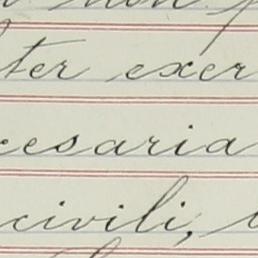 non
ter exer
cesaria
civili,